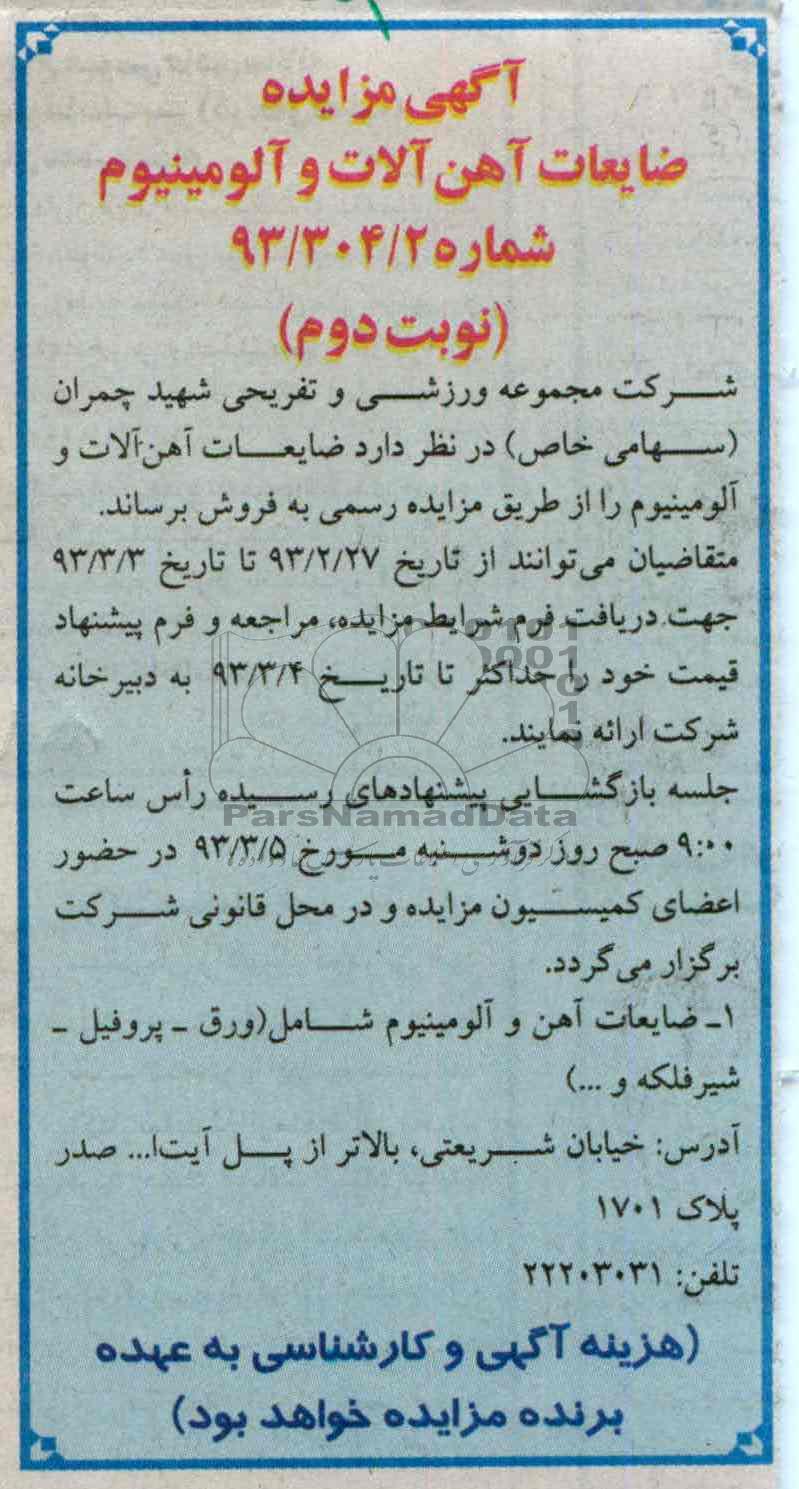 آگهی مزایده
ضایعات آهن آلات و آلومینیوم
شماره ۹۳/۳۰۴/۲
(نوبت دوم)
شرکت مجموعه ورزشی و تفریحی شهید چمران
(سهامی خاص) در نظر دارد ضایعات آهن‌آلات و
آلومینیوم را از طریق مزایده رسمی به فروش برساند.
متقاضیان می‌توانند از تاریخ ۹۳/۲/۲۷ تا تاریخ ۹۳/۳/۳
جهت دریافت فرم شرایط مزایده، مراجعه و فرم پیشنهاد
قیمت خود را حداکثر تا تاریخ ۹۳/۳/۴ به دبیرخانه
شرکت ارائه نمایند.
جلسه بازگشایی پیشنهادهای رسیده رأس ساعت
ParsNamadData
۹:۰۰ صبح روز دوشنبه مورخ ۹۳/۳/۵ در حضور
اعضای کمیسیون مزایده و در محل قانونی شرکت
برگزار می‌گردد.
۱ـ ضایعات آهن و آلومینیوم شامل(ورق ـ پروفیل ـ
شیرفلکه و ...)
آدرس: خیابان شریعتی، بالاتر از پل آیت‌ا... صدر
پلاک ۱۷۰۱
تلفن: ۲۲۲۰۳۰۳۱
(هزینه آگهی و کارشناسی به عهده
برنده مزایده خواهد بود)